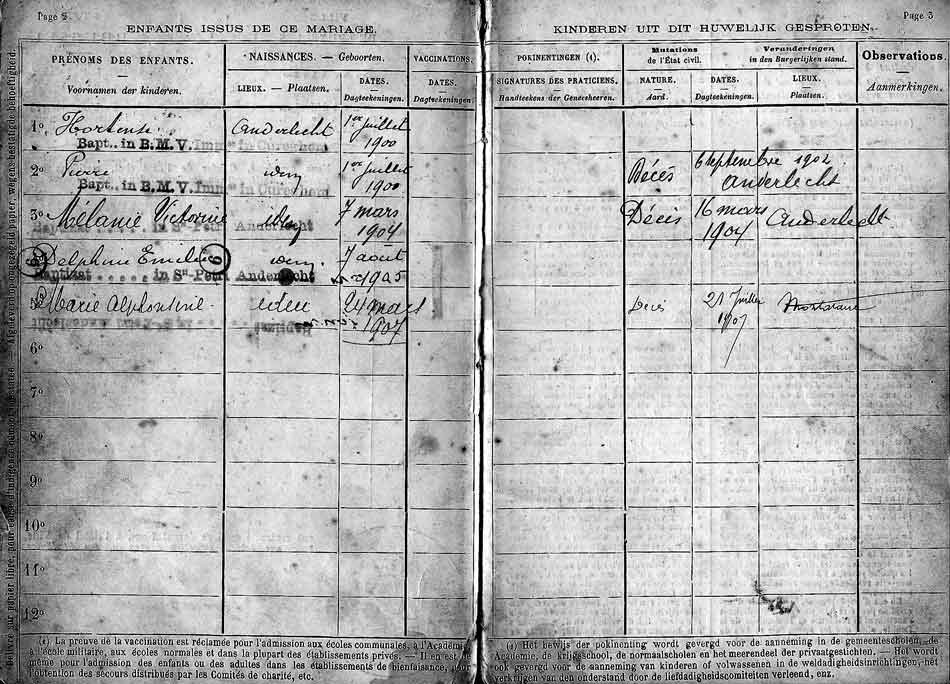 Page 2
ENFANTS ISSUS DE CE MARIAGE.
PRÉNOMS DES ENFANTS.
Voornamen der kinderen.
NAISSANCES. — Geboorten.
LIEUX. — Plaatsen.
DATES.
Dagteekeningen.
VACCINATIONS
DATES.
Dagteekeningen.
1º Hortense Anderlecht 1er juillet
Bapt.. in B.M.V. Imm in Cureghem 1900
2º Pierre idem 1er juillet
Bapt.. in B.M.V. Imm in Cureghem 1900
3º Mélanie Victorine 7 mars
in St-Petri Anderlecht 1904
Delphine Emilie idem 7 aout
Baptizat in St-Petri Anderlecht 1905
5º Marie Alphonsine 24 mars
1907
6º
7º
8º
9º
10º
11º
12º
(1) La preuve de la vaccination est réclamée pour l'admission aux écoles communales, à l'Académie
à l'école militaire, aux écoles normales et dans la plupart des établissements privés. — Il en est
même pour l'admission des enfants ou des adultes dans les établissements de bienfaisance, pour
l'obtention des secours distribués par les Comités de charité, etc.
Page 3
KINDEREN UIT DIT HUWELIJK GESPROTEN.
POKINENTINGEN (1).
SIGNATURES DES PRATICIENS.
Handteekens der Geneesheeren.
Mutations
de l'État civil.
Veranderingen
in den Burgerlijken stand.
NATURE.
Aard.
DATES.
Dagteekeningen.
LIEUX.
Plaatsen.
Observations.
Aanmerkingen.
Décés 6 septembre 1902
Anderlecht
Décés 16 mars Anderlecht
1904
Décés 21 Juillet
1907
(1) Het bewijs der pokinenting wordt gevergd voor de aanneming in de gemeentescholen, de
Academie, de krijgsschool, de normaalscholen en het meerendeel der privaatgestichten. — Het wordt
ook gevergd voor de aanneming van kinderen of volwassenen in de weldadigheidsinrichtingen, het
verkrijgen van den onderstand door de liefdadigheidscomiteiten verleend, enz.